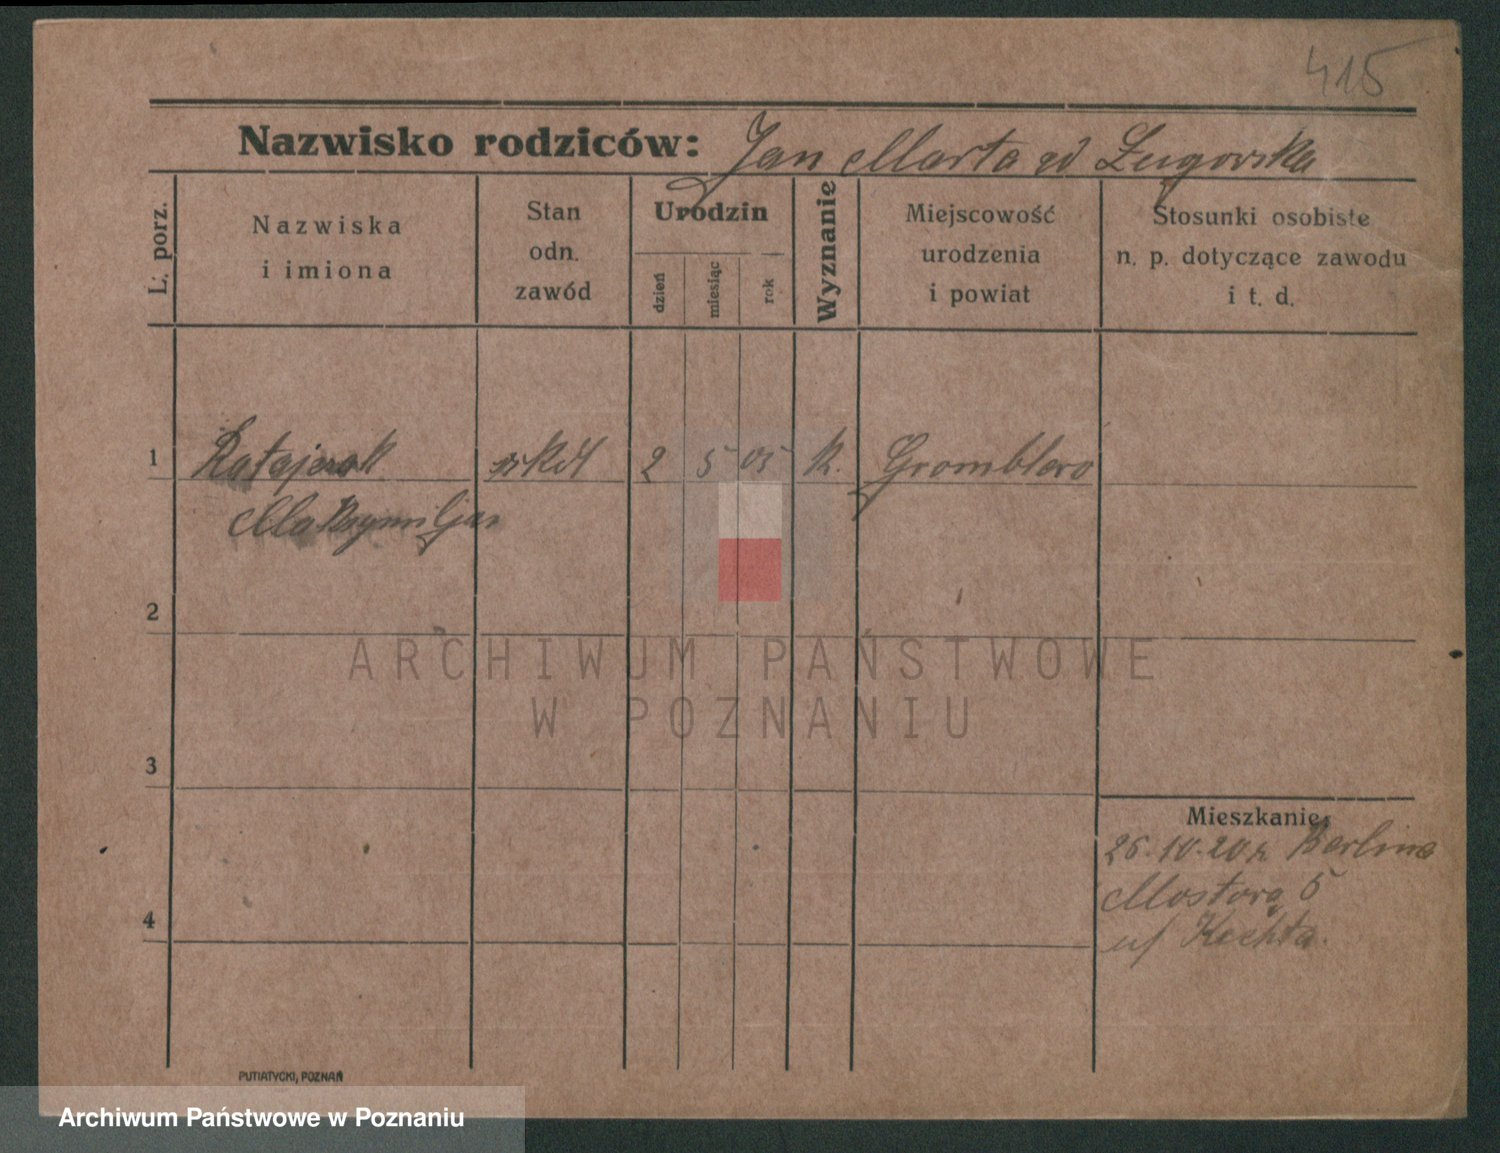 415
Nazwisko rodziców: Jan Marta zd Ługowska
L. porz.
Nazwiska
i imiona
Stan
odn.
zawód
Urodzin
dzień
miesiąc
rok
Wyznanie
Miejscowość
urodzenia
i powiat
Stosunki osobiste
n. p. dotyczące zawodu
i t. d.
1 Ratajczak 2 5 05 k. Gromblewo
Maksymiljan
2
ARCHIWUM PAŃSTWOWE
W POZNANIU
3
Mieszkanie:
26.10.20 r. Berlina
4
Mostowa 5
u/ Kechta.
PUTIATYCKI, POZNAŃ
Archiwum Państwowe w Poznaniu